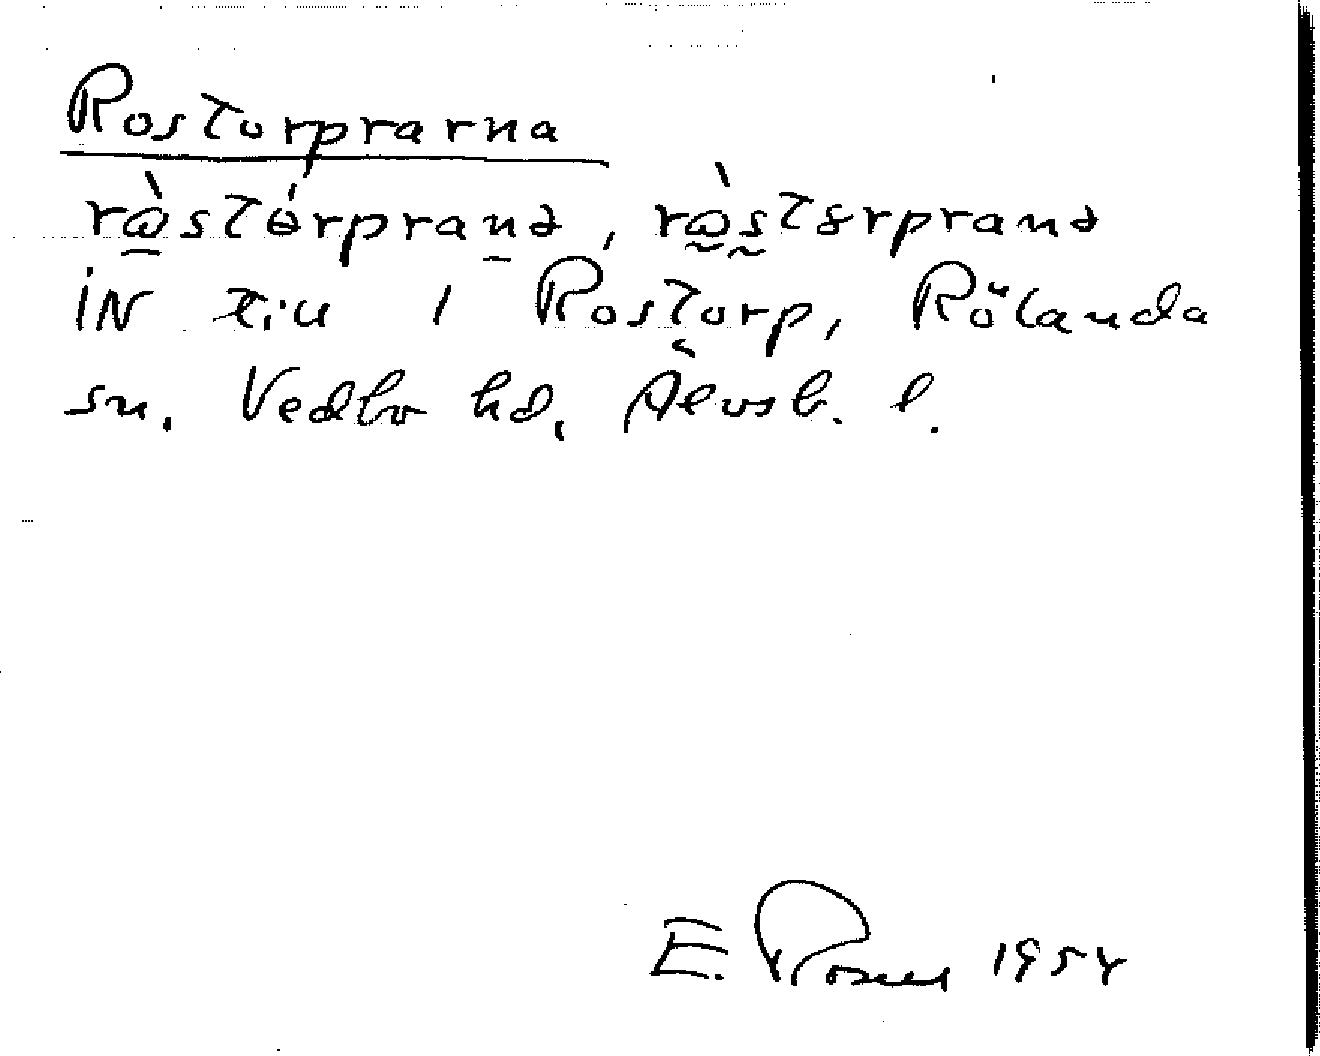 Rostorprarna
ràstórpranə, ràstɵrpranə
IN till Rostorp, Rölanda
sn. Vedbo hd, Älvsb. l.
E. Rosell 1954